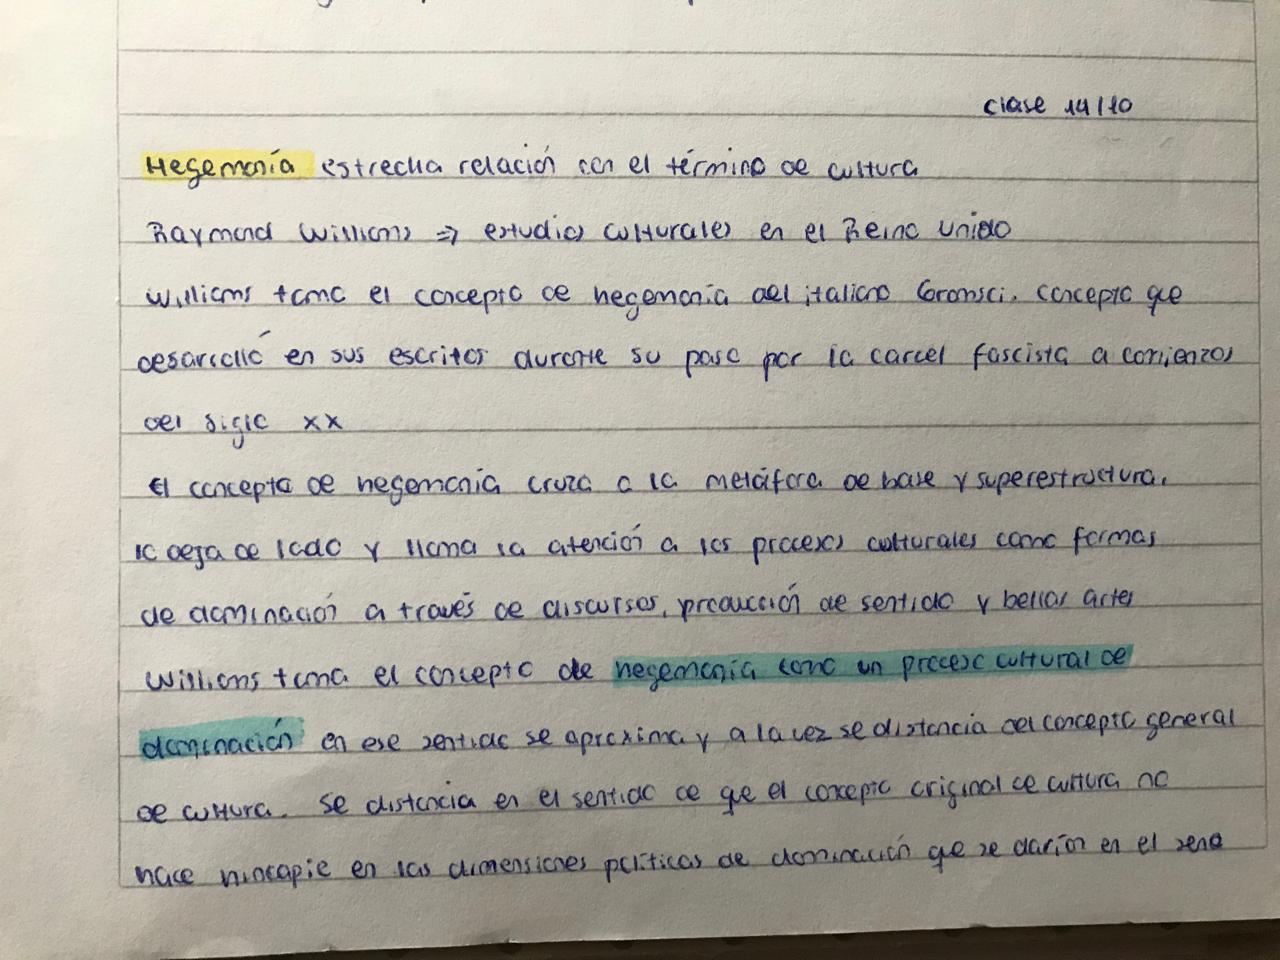 clase 14/10
Hegemonía estrecha relación con el término de cultura
Raymond Williams ⇒ estudios culturales en el Reino Unido
Williams toma el concepto de hegemonía del italiano Gramsci, concepto que
desarrolló en sus escritos durante su paso por la carcel fascista a comienzos
del siglo XX
El concepto de hegemonía cruza a la metáfora de base y superestructura,
lo deja de lado y llama la atención a los procesos culturales como formas
de dominación a través de discursos, producción de sentido y bellas artes
Williams toma el concepto de hegemonía como un proceso cultural de
dominación en ese sentido se aproxima y a la vez se distancia del concepto general
de cultura. Se distancia en el sentido de que el concepto original de cultura no
hace hincapie en las dimensiones políticas de dominación que se darían en el seno